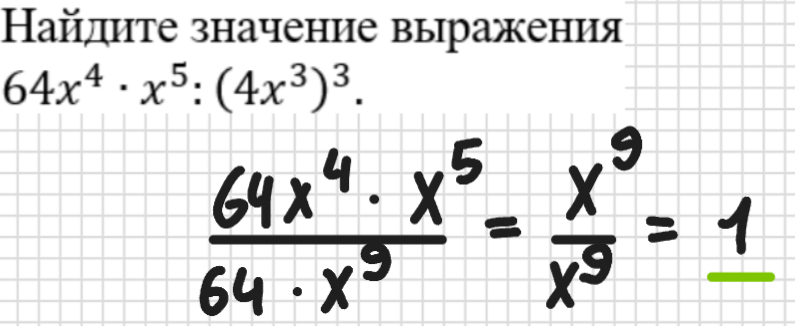 Найдите значение выражения
64x⁴ · x⁵: (4x³)³.
64x⁴ · x⁵ / 64 · x⁹ = x⁹ / x⁹ = 1